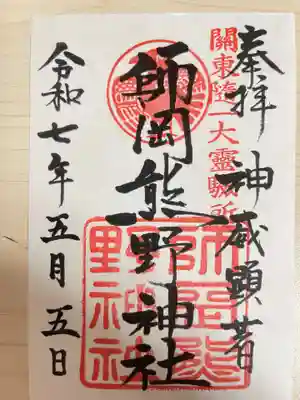 奉拝　神威顕著
關東随一大霊験所
師岡熊野神社
師岡熊野神社
令和七年五月五日